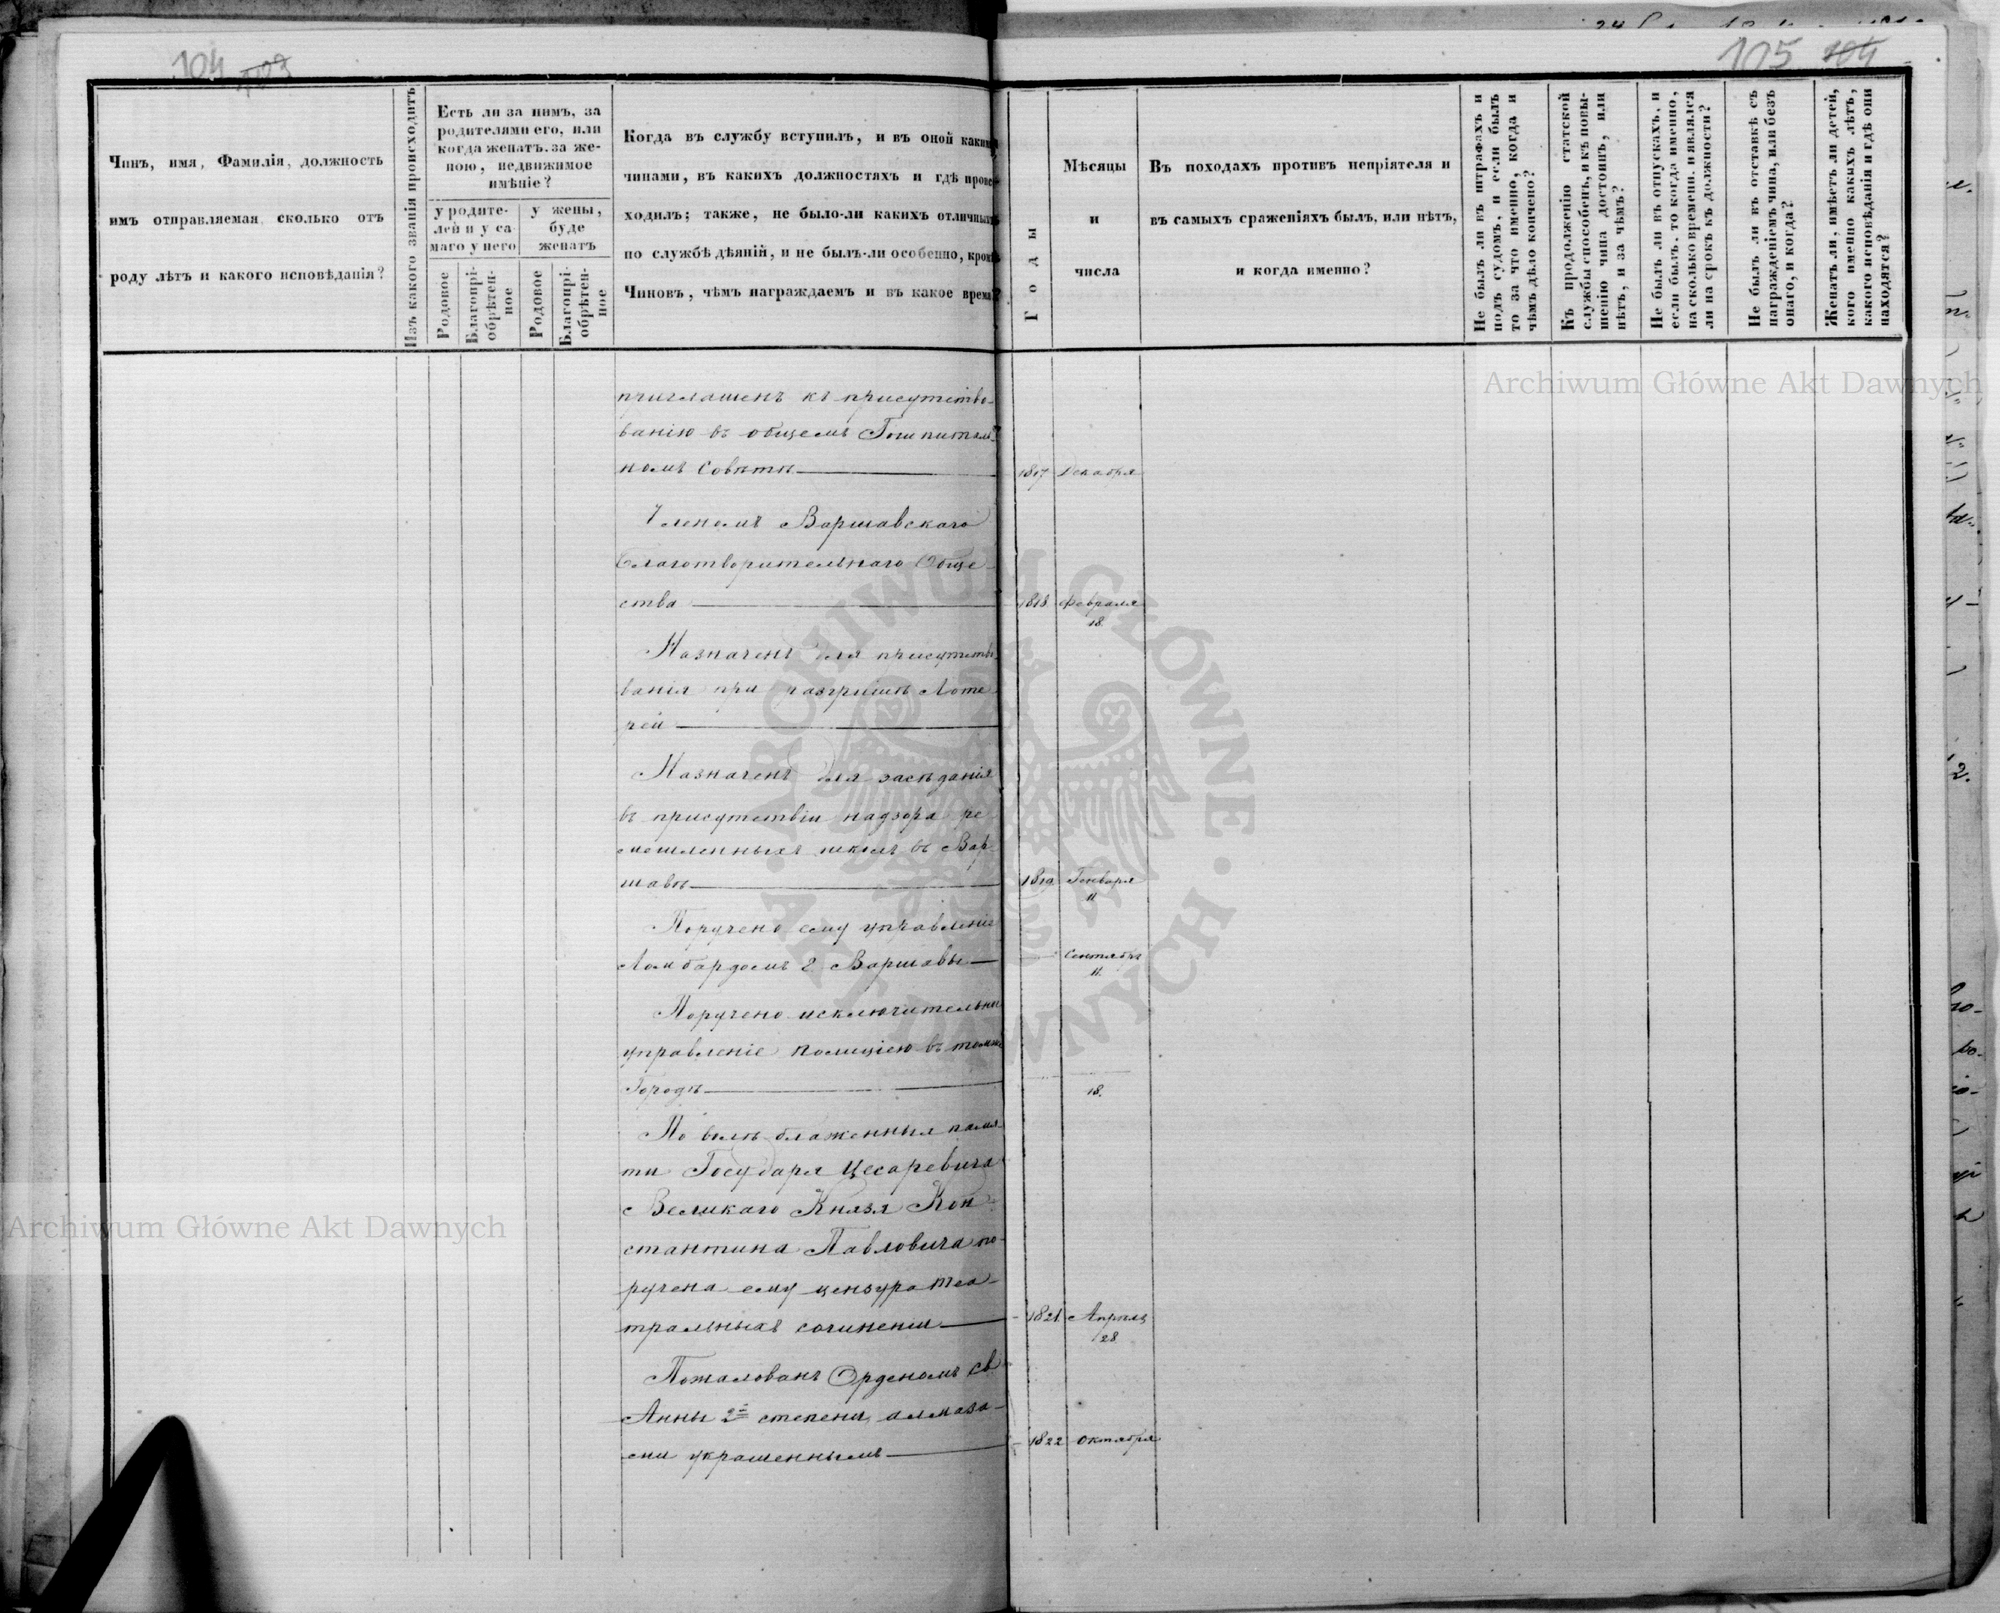 104 103
105 104
Чинъ, имя, Фамилія, должность
имъ отправляемая, сколько отъ
роду лѣтъ и какого исповѣданія?
Изъ какого званія происходитъ
Есть ли за нимъ, за
родителями его, или
когда женатъ, за же-
ною, недвижимое
имѣніе?
у родите-
лей и у са-
маго у него
у жены,
буде
женатъ
Родовое
Благопрі-
обрѣтен-
ное
Родовое
Благопрі-
обрѣтен-
ное
Когда въ службу вступилъ, и въ оной какими
чинами, въ какихъ должностяхъ и гдѣ проис-
ходилъ; также, не было-ли какихъ отличныхъ
по службѣ дѣяній, и не былъ-ли особенно, кромѣ
Чиновъ, чѣмъ награждаемъ и въ какое время?
Годы
Мѣсяцы
и
числа
Въ походахъ противъ непріятеля и
въ самыхъ сраженіяхъ былъ, или нѣтъ,
и когда именно?
Не былъ ли въ штрафахъ и
подъ судомъ, и если былъ
то за что именно, когда и
чѣмъ дѣло кончено?
Къ продолженію статской
службы способенъ, и къ повы-
шенію чина достоинъ, или
нѣтъ, и за чѣмъ?
Не былъ ли въ отпускахъ, и
если былъ, то когда именно,
на сколько времени, и явился
ли на срокъ къ должности?
Не былъ ли въ отставкѣ съ
награжденіемъ чина, или безъ
онаго, и когда?
Женатъ ли, имѣетъ ли дѣтей,
кого именно какихъ лѣтъ,
какого исповѣданія и гдѣ они
находятся?
приглашенъ къ присутство-
ванію въ общемъ Гошпиталь-
номъ Совѣтѣ 1817 Декабря
Членомъ Варшавскаго
Благотворительнаго Обще-
ства 1818 Февраля
18.
Назначенъ для присутство-
ванія при розыгрышѣ Лоте-
рей
Назначенъ для засѣданія
въ присутствіи надзора ре-
месленныхъ школъ въ Вар-
шавѣ 1819 Генваря
11
Поручено ему управленіе
Ломбардомъ г. Варшавы Сентября
11.
Поручено исключительно
управленіе полиціею въ томже
Городѣ 18.
По волѣ блаженныя памя-
ти Государя Цесаревича
Великаго Князя Кон-
стантина Павловича по-
ручена ему цензура теа-
тральныхъ сочиненій 1821 Апрѣля
28
Пожалованъ Орденомъ Св.
Анны 2й степени, алмаза-
ми украшеннымъ 1822 Октября
Archiwum Główne Akt Dawnych
Archiwum Główne Akt Dawnych
ARCHIWUM GŁÓWNE · AKT DAWNYCH ·